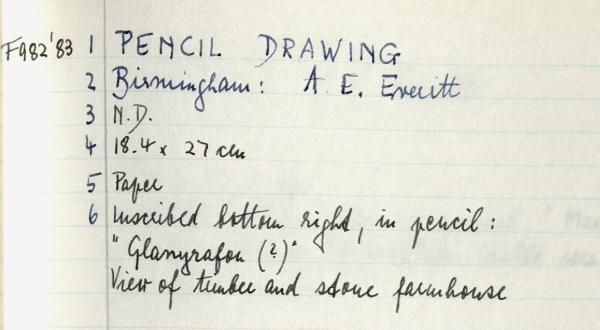 F982'83 1 PENCIL DRAWING
2 Birmingham: A. E. Everitt
3 N.D.
4 18.4 x 27 cm
5 Paper
6 Inscribed bottom right, in pencil:
"Glanyrafon (?)"
View of timber and stone farmhouse